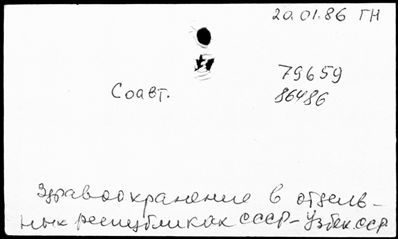 20.01.86 ГН
79659
Соавт.
86486
Здравоохранение в отдель-
ных республиках СССР-Узбек.ССР